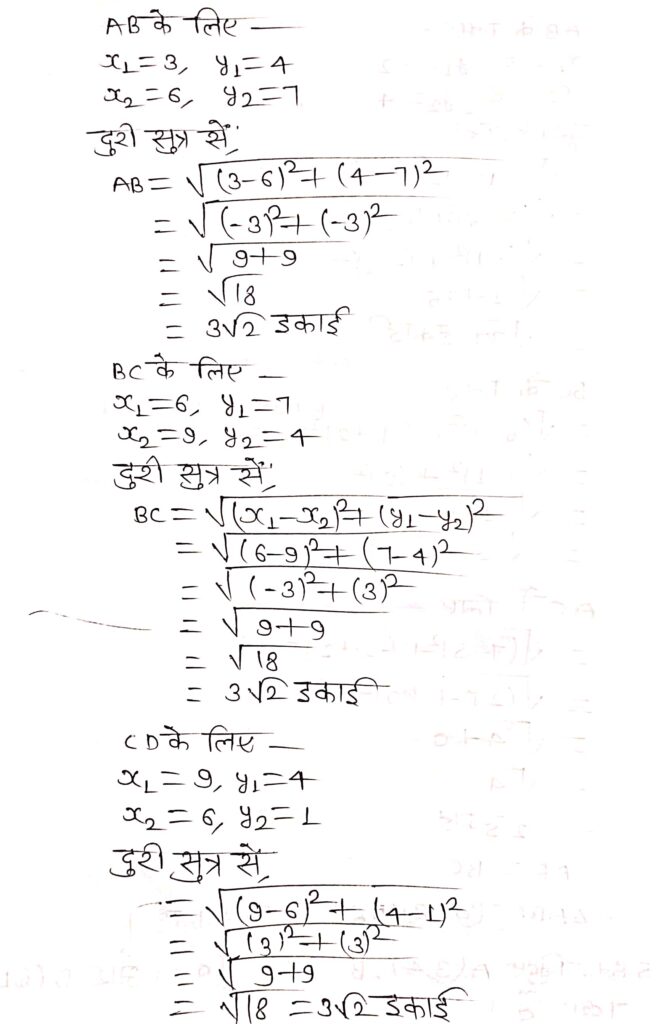 AB के लिए —
x₁=3, y₁=4
x₂=6, y₂=7
दुरी सुत्र सें,
AB = √(3-6)²+(4-7)²
= √(-3)²+(-3)²
= √9+9
= √18
= 3√2 इकाई
BC के लिए —
x₁=6, y₁=7
x₂=9, y₂=4
दुरी सुत्र सें,
BC = √(x₁-x₂)²+(y₁-y₂)²
= √(6-9)²+(7-4)²
= √(-3)²+(3)²
= √9+9
= √18
= 3√2 इकाई
CD के लिए —
x₁=9, y₁=4
x₂=6, y₂=1
दुरी सुत्र सें,
= √(9-6)²+(4-1)²
= √(3)²+(3)²
= √9+9
= √18 = 3√2 इकाई